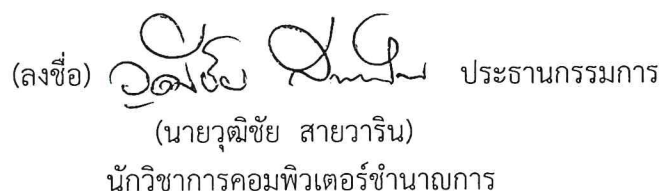 (ลงชื่อ) วุฒิชัย สายวาริน ประธานกรรมการ
(นายวุฒิชัย สายวาริน)
นักวิชาการคอมพิวเตอร์ชำนาญการ